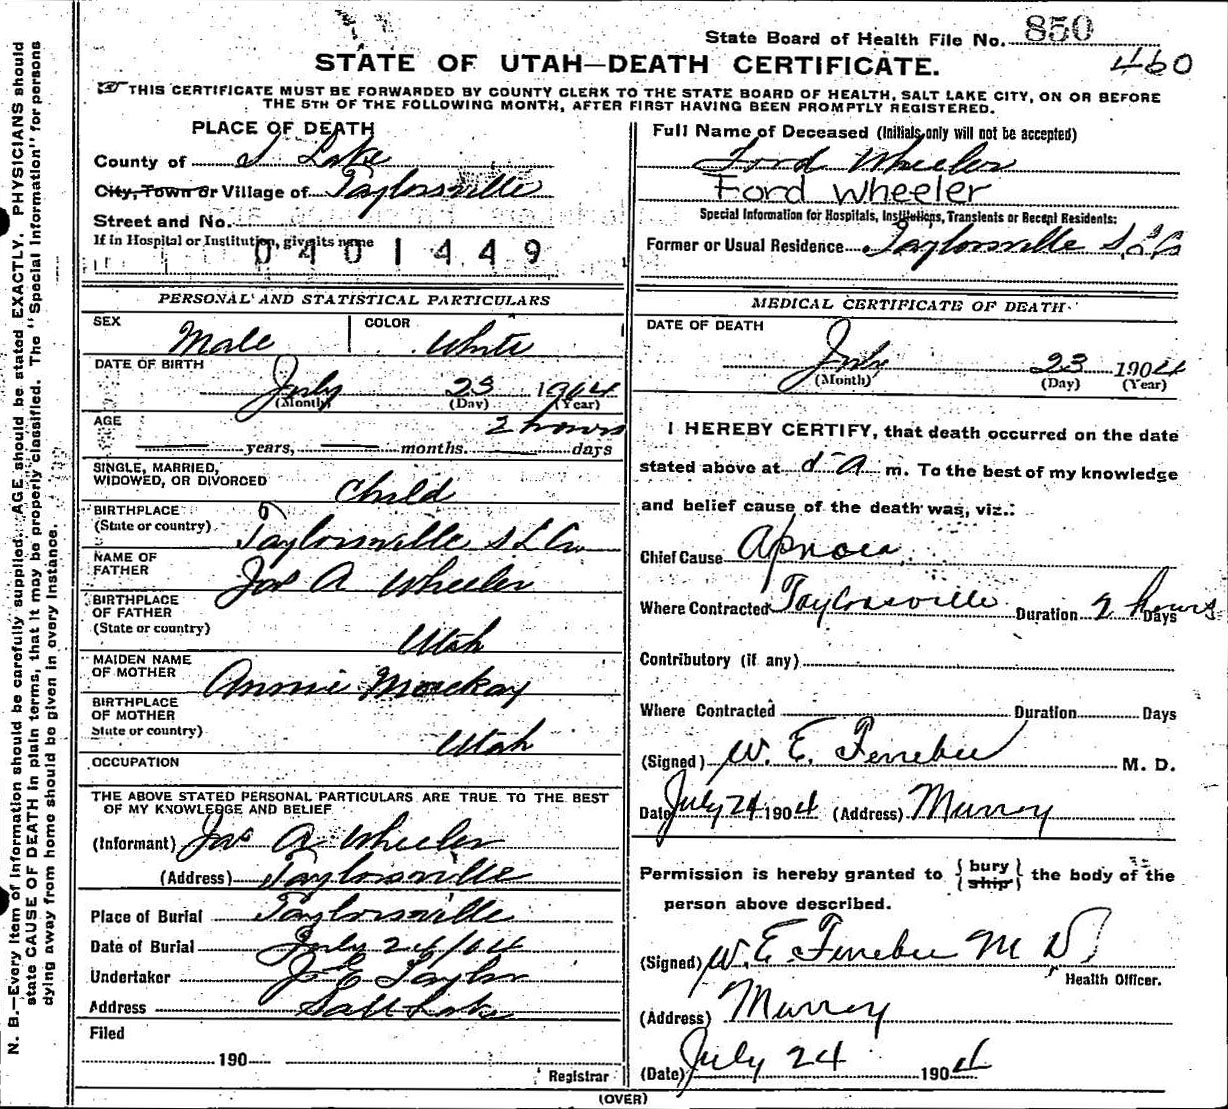 State Board of Health File No. 850
460
STATE OF UTAH—DEATH CERTIFICATE.
THIS CERTIFICATE MUST BE FORWARDED BY COUNTY CLERK TO THE STATE BOARD OF HEALTH, SALT LAKE CITY, ON OR BEFORE
THE 5TH OF THE FOLLOWING MONTH, AFTER FIRST HAVING BEEN PROMPTLY REGISTERED.
N. B.—Every item of Information should be carefully supplied. AGE should be stated EXACTLY. PHYSICIANS should
state CAUSE OF DEATH in plain terms, that it may be properly classified. The "Special Information" for persons
dying away from home should be given in every instance.
PLACE OF DEATH
County of S Lake
City, Town or Village of Taylorsville
Street and No.
If in Hospital or Institution, give its name
0401449
PERSONAL AND STATISTICAL PARTICULARS
SEX Male COLOR White
DATE OF BIRTH
July 23 1904
(Month) (Day) (Year)
AGE 2 hours
years, months. days
SINGLE, MARRIED,
WIDOWED, OR DIVORCED Child
BIRTHPLACE
(State or country) Taylorsville S L Co
NAME OF
FATHER Jas A Wheeler
BIRTHPLACE
OF FATHER
(State or country) Utah
MAIDEN NAME
OF MOTHER Annie Mackay
BIRTHPLACE
OF MOTHER
State or country) Utah
OCCUPATION
THE ABOVE STATED PERSONAL PARTICULARS ARE TRUE TO THE BEST
OF MY KNOWLEDGE AND BELIEF
(Informant) Jas A Wheeler
(Address) Taylorsville
Place of Burial Taylorsville
Date of Burial July 24/04
Undertaker J E Taylor
Address Salt Lake
Filed
190
Registrar
Full Name of Deceased (Initials only will not be accepted)
Ford Wheeler
Ford Wheeler
Special Information for Hospitals, Institutions, Transients or Recent Residents:
Former or Usual Residence Taylorsville S L Co
MEDICAL CERTIFICATE OF DEATH
DATE OF DEATH
July 23 1904
(Month) (Day) (Year)
I HEREBY CERTIFY, that death occurred on the date
stated above at A m. To the best of my knowledge
and belief cause of the death was, viz.:
Chief Cause Apnoea
Where Contracted Taylorsville Duration 2 hours Days
Contributory (if any)
Where Contracted Duration Days
(Signed) W. E. Ferrebee M. D.
Date July 24 1904 (Address) Murray
Permission is hereby granted to { bury } the body of the
{ ship }
person above described.
(Signed) W. E. Ferrebee M D
Health Officer.
(Address) Murray
(Date) July 24 1904
(OVER)